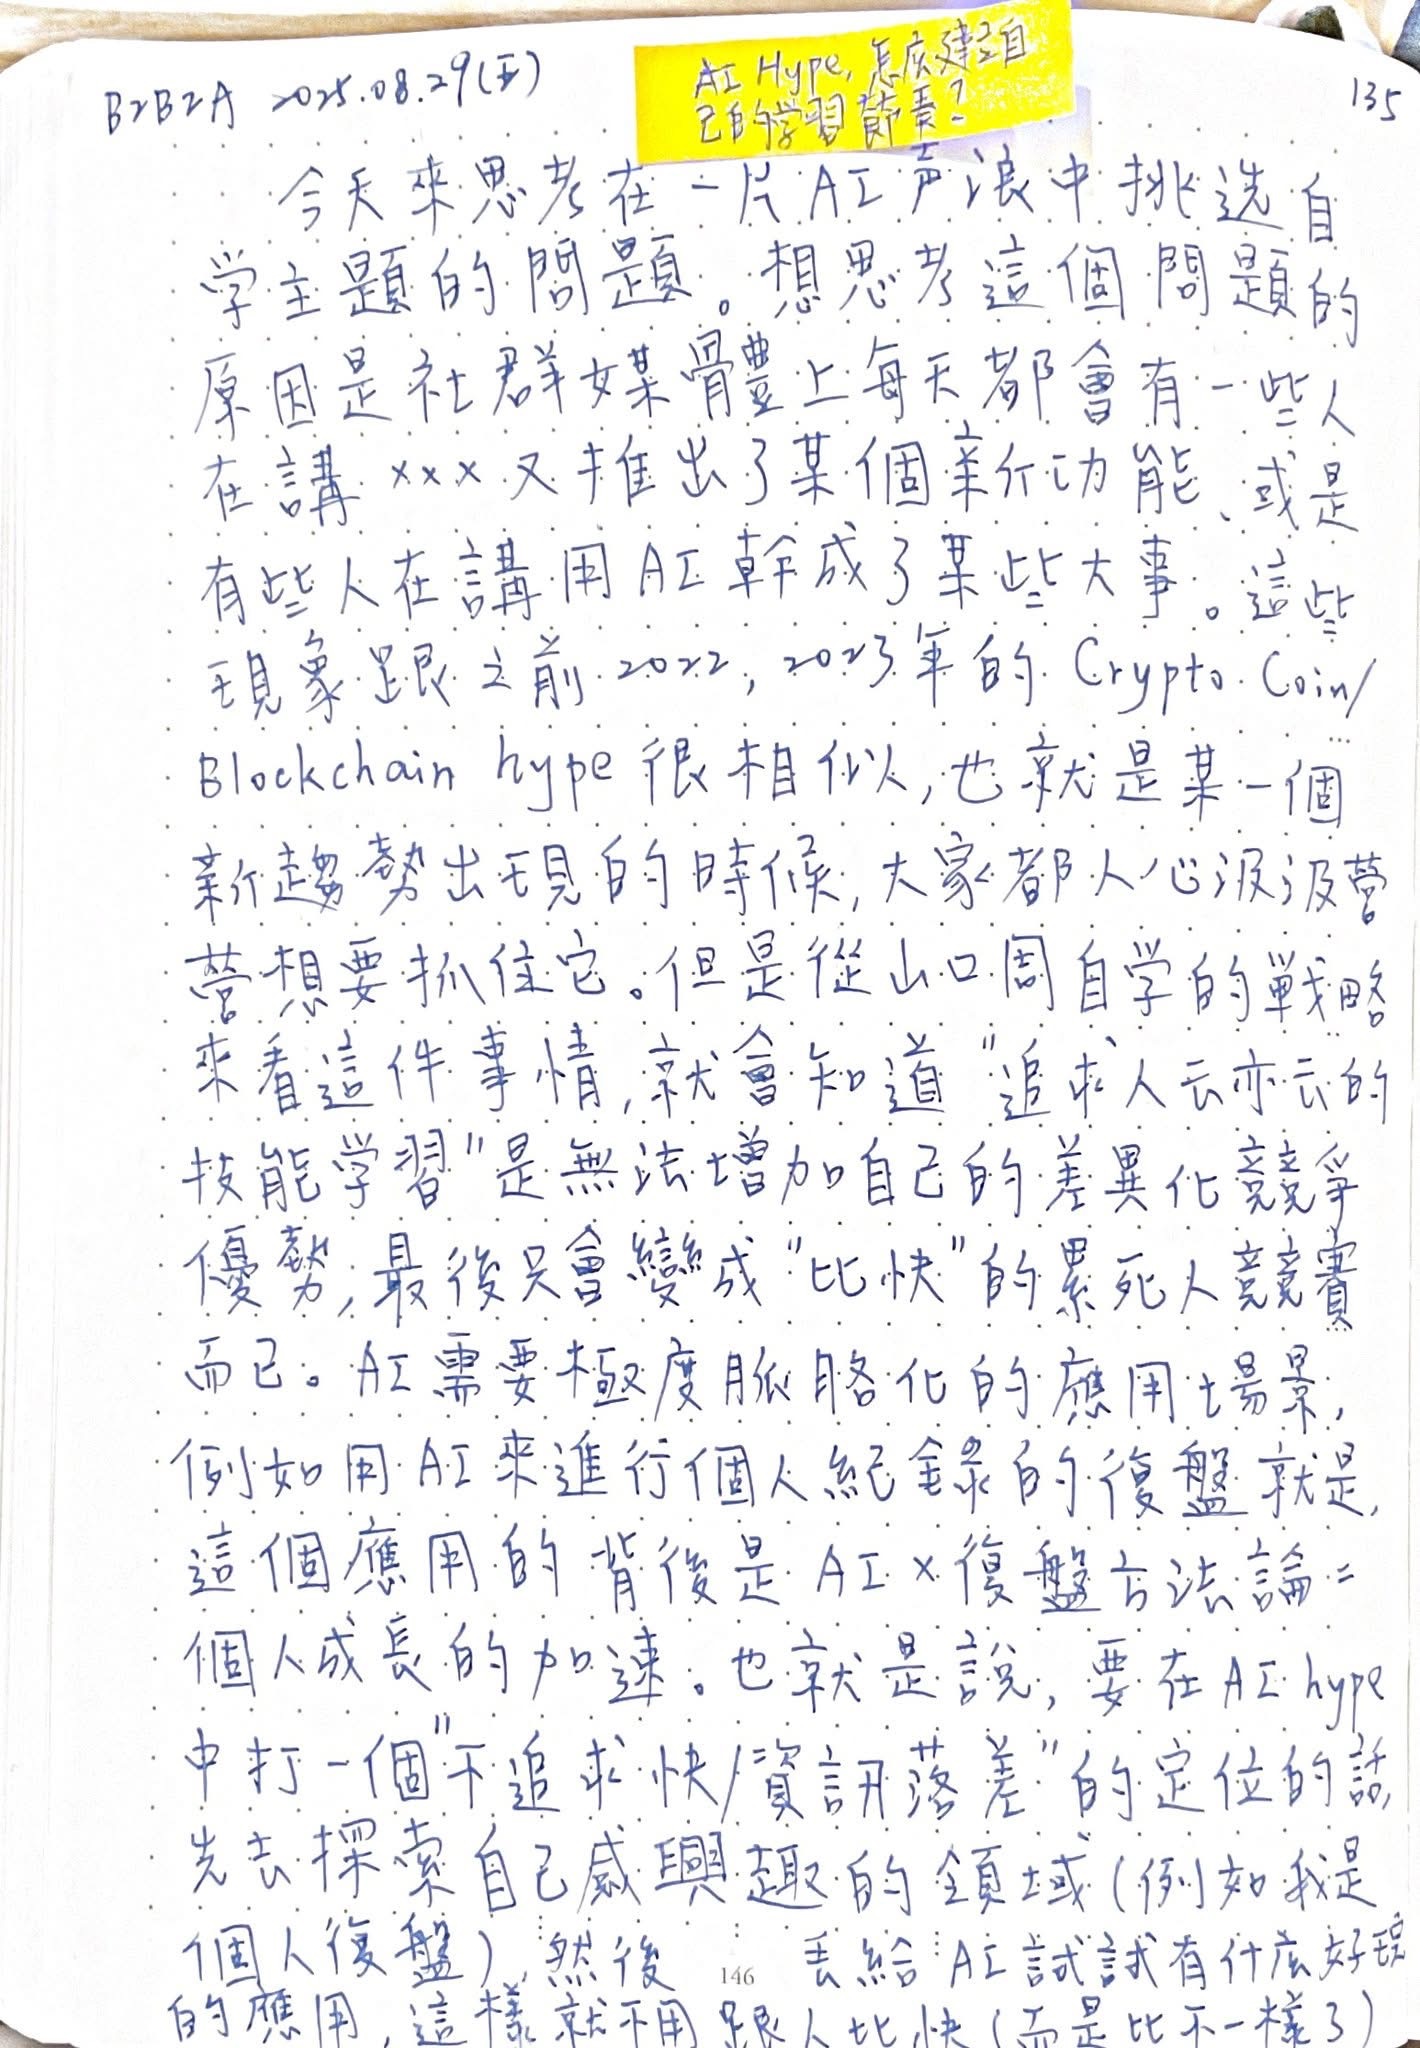 B2B2A 2025.08.29(五)
AI Hype, 怎麼建立自
己的学習節奏?
135
今天來思考在一片AI声浪中挑选自
学主題的問題。想思考這個問題的
原因是社群媒體上每天都會有一些人
在講×××又推出了某個新功能、或是
有些人在講用AI幹成了某些大事。這些
現象跟之前2022, 2023年的Crypto Coin/
Blockchain hype很相似,也就是某一個
新趨勢出現的時候,大家都人心汲汲營
營想要抓住它。但是從山口周自学的戰略
來看這件事情,就會知道"追求人云亦云的
技能学習"是無法增加自己的差異化競爭
優勢,最後只會變成"比快"的累死人競賽
而已。AI需要極度脈胳化的應用場景,
例如用AI來進行個人紀錄的復盤就是,
這個應用的背後是AI×復盤方法論=
個人成長的加速。也就是說,要在AI hype
中打一個"不追求快/資訊落差"的定位的話,
先去探索自己感興趣的領域(例如我是
個人復盤),然後 丟給AI試試有什麼好玩
146
的應用,這樣就不用跟人比快(而是比不一樣了)